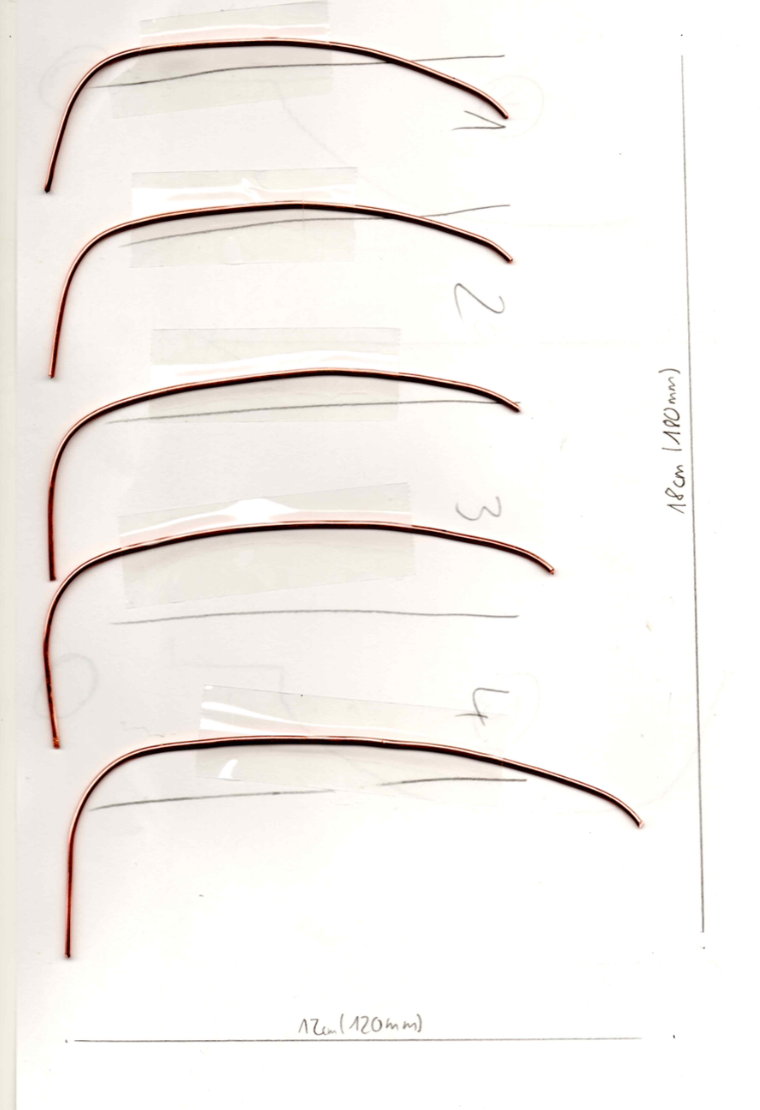 1
2
18cm (180mm)
3
4
12cm (120mm)